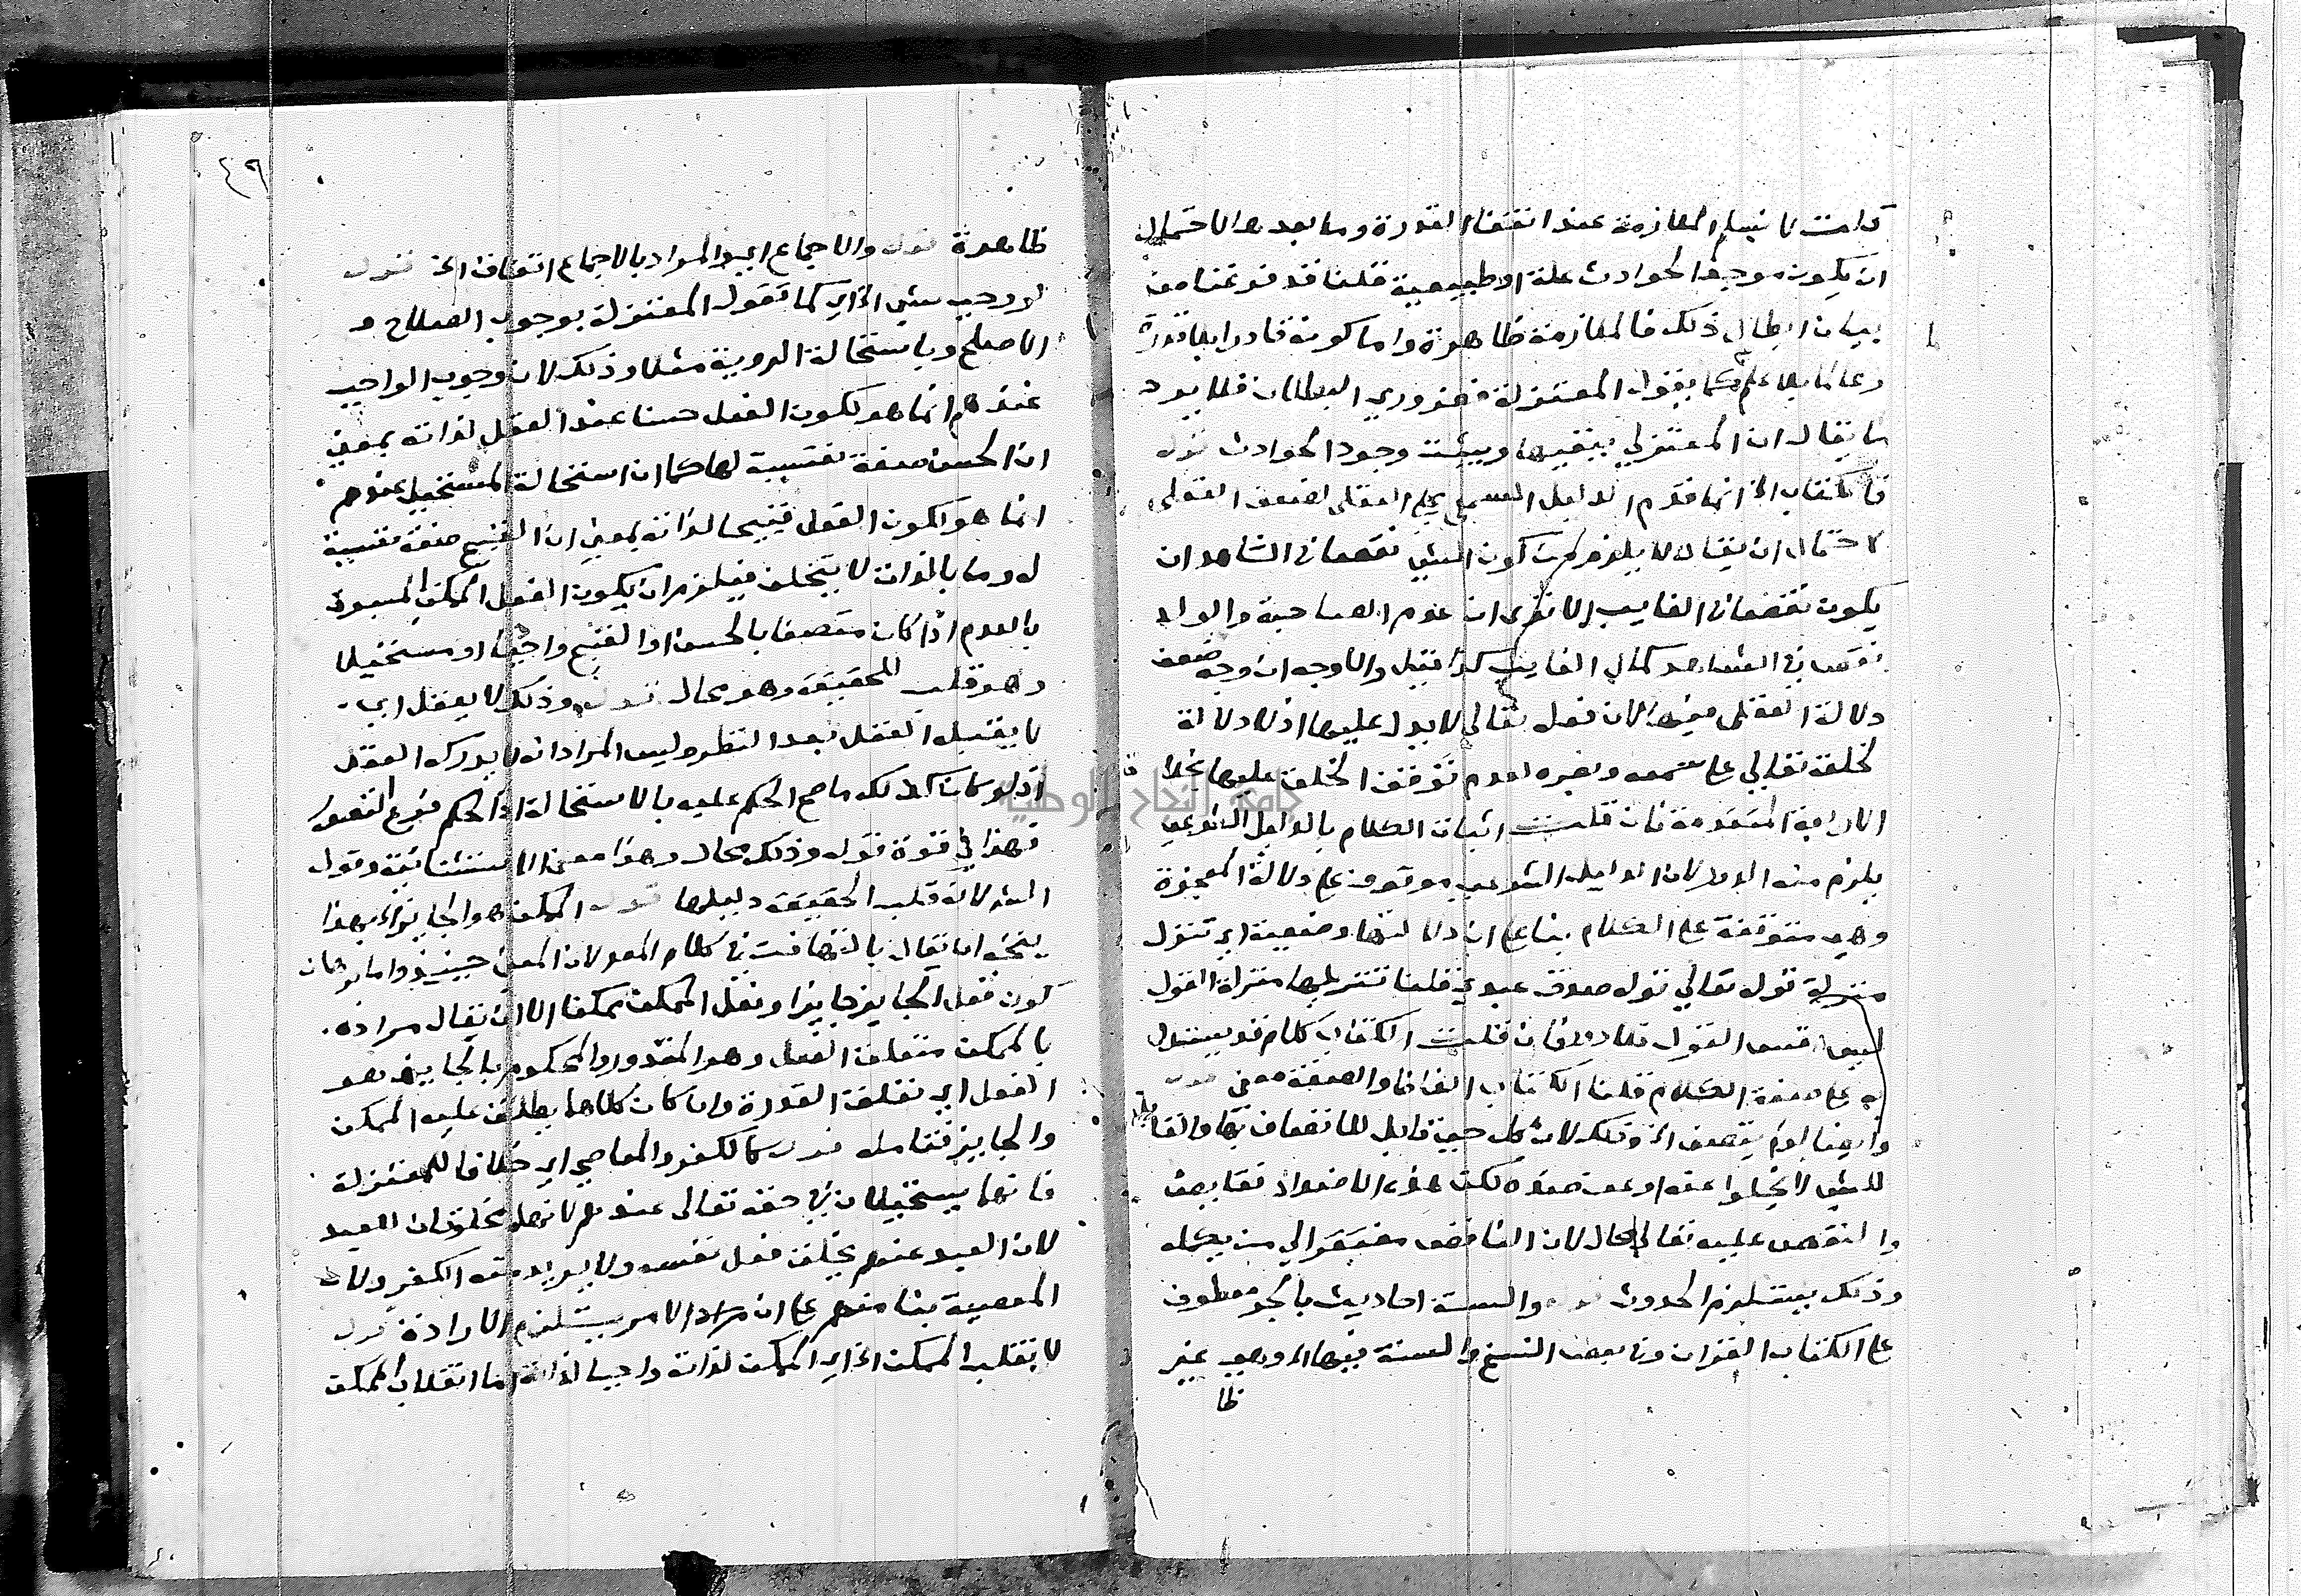 قلت لا نسلم الملازمة عند انتفاء القدرة وما بعدها لاحتمال
ان يكون موجد الحوادث علة او طبيعية قلنا قد فرغنا من
بيان ابطال ذلك فالملازمة ظاهرة واما كونه قادرا بلا قدرة
وعالما بلا علم كما يقول المعتزلة فضروري البطلان فلا يرد
ما يقال ان المعتزلي ينفيها ويثبت وجود الحوادث قوله
فالكتاب الخ انما قدم الدليل السمعي على العقلي لضعف العقلي
لاحتمال ان يقال لا يلزم من كون الشي نقصا في الشاهد ان
يكون نقصا في الغايب الا ترى ان عدم الصاحبة والولد
نقص في الشاهد كمال الغايب كذا قيل والاوجه ان وجه ضعف
دلالة العقلي فيها لان فعله تعالى لا يدل عليها اذ لا دلالة
لخلقه تعالى على سمعه وبصره لعدم توقف الخلق عليها بخلاف
الاربعة المتقدمة فان قلت اثبات الكلام بالدليل الشرعي
يلزم منه الدور لان الدليل الشرعي موقوف على دلالة المعجزة
وهي متوقفة على الكلام بنا على ان دلالتها وضعية اي تتنزل
منزلة قوله تعالى قوله صدق عبدي قلنا تنزيلها منزلة القول
ليس نفس القول فلا دور فان قلت الكتاب كلام فد يستدل
به على صفة الكلام قلنا الكتاب الفاظ والصفة معنى قوله
وايضا لو لم يتصف الخ وذلك لان كل حي قابل للاتصاف بها والقابل
للشي لا يخلوا عنه او عن ضده لكن هذه الاضداد نقايص
والنقص عليه تعالى محال لان الناقص مفتقر الى من يكمله
وذلك يستلزم الحدوث قوله والسنة احاديث بالجر معطوف
على الكتاب القران وفي بعض النسخ والسنة فيها الخ وهي غير
ظا
٤٩
ظاهرة قوله والاجماع اي والمراد بالاجماع اتفاق الخ قوله
لو وجب شي الخ اي كما تقول المعتزلة بوجوب الصلاح و
الاصلح وباستحالة الروية مثلا وذلك لان وجوب الواجب
عندهم انما هو لكون الفعل حسنا عند العقل لذاته بمعنى
ان الحسن صفة نفسية لها كما ان استحالة المستحيل عندهم
انما هو لكون الفعل قبيحا لذاته بمعنى ان القبح صفة نفسية
له وما بالذات لا يتخلف فيلزم ان يكون الفعل الممكن المسبوق
بالعدم اذا كان متصفا بالحسن او القبح واجبا او مستحيلا
وهو قلب الحقيقة وهو محال قوله وذلك لا يعقل اي
لا يقبله العقل بعد النظر وليس المراد انه لا يدركه العقل
اذ لو كان كذلك ما صح الحكم عليه بالاستحالة اذ الحكم فرع التصور
فهذا في قوة قوله وذلك محال وهذا معنى الاستثنائية وقول
الشر لانه قلب الحقيقة دليلها قوله الممكن هو الجايز الخ بهذا
يتجه ان يقال بالتهافت في كلام المص لان المعنى حينيذ واما برهان
كون فعل الجايز جايزا وفعل الممكن ممكنا الا ان يقال مراده
بالممكن متعلق الفعل وهو المقدور والمحكوم بالجايز هو
الفعل اي تعلق القدرة وان كان كلاهما يطلق عليه الممكن
والجايز فتامله قوله كالكفر والمعاصي اي خلافا للمعتزلة
فانهما يستحيلان في حقه تعالى عندهم لانهما مخلوقان للعبد
لان العبد عندهم يخلق فعل نفسه ولا يريد منه الكفر ولا
المعصية بنا منهم على ان مراد الامر يستلزم الارادة قوله
لا نقلب الممكن الخ اي الممكن لذاته واجبا لذاته اما انقلاب الممكن